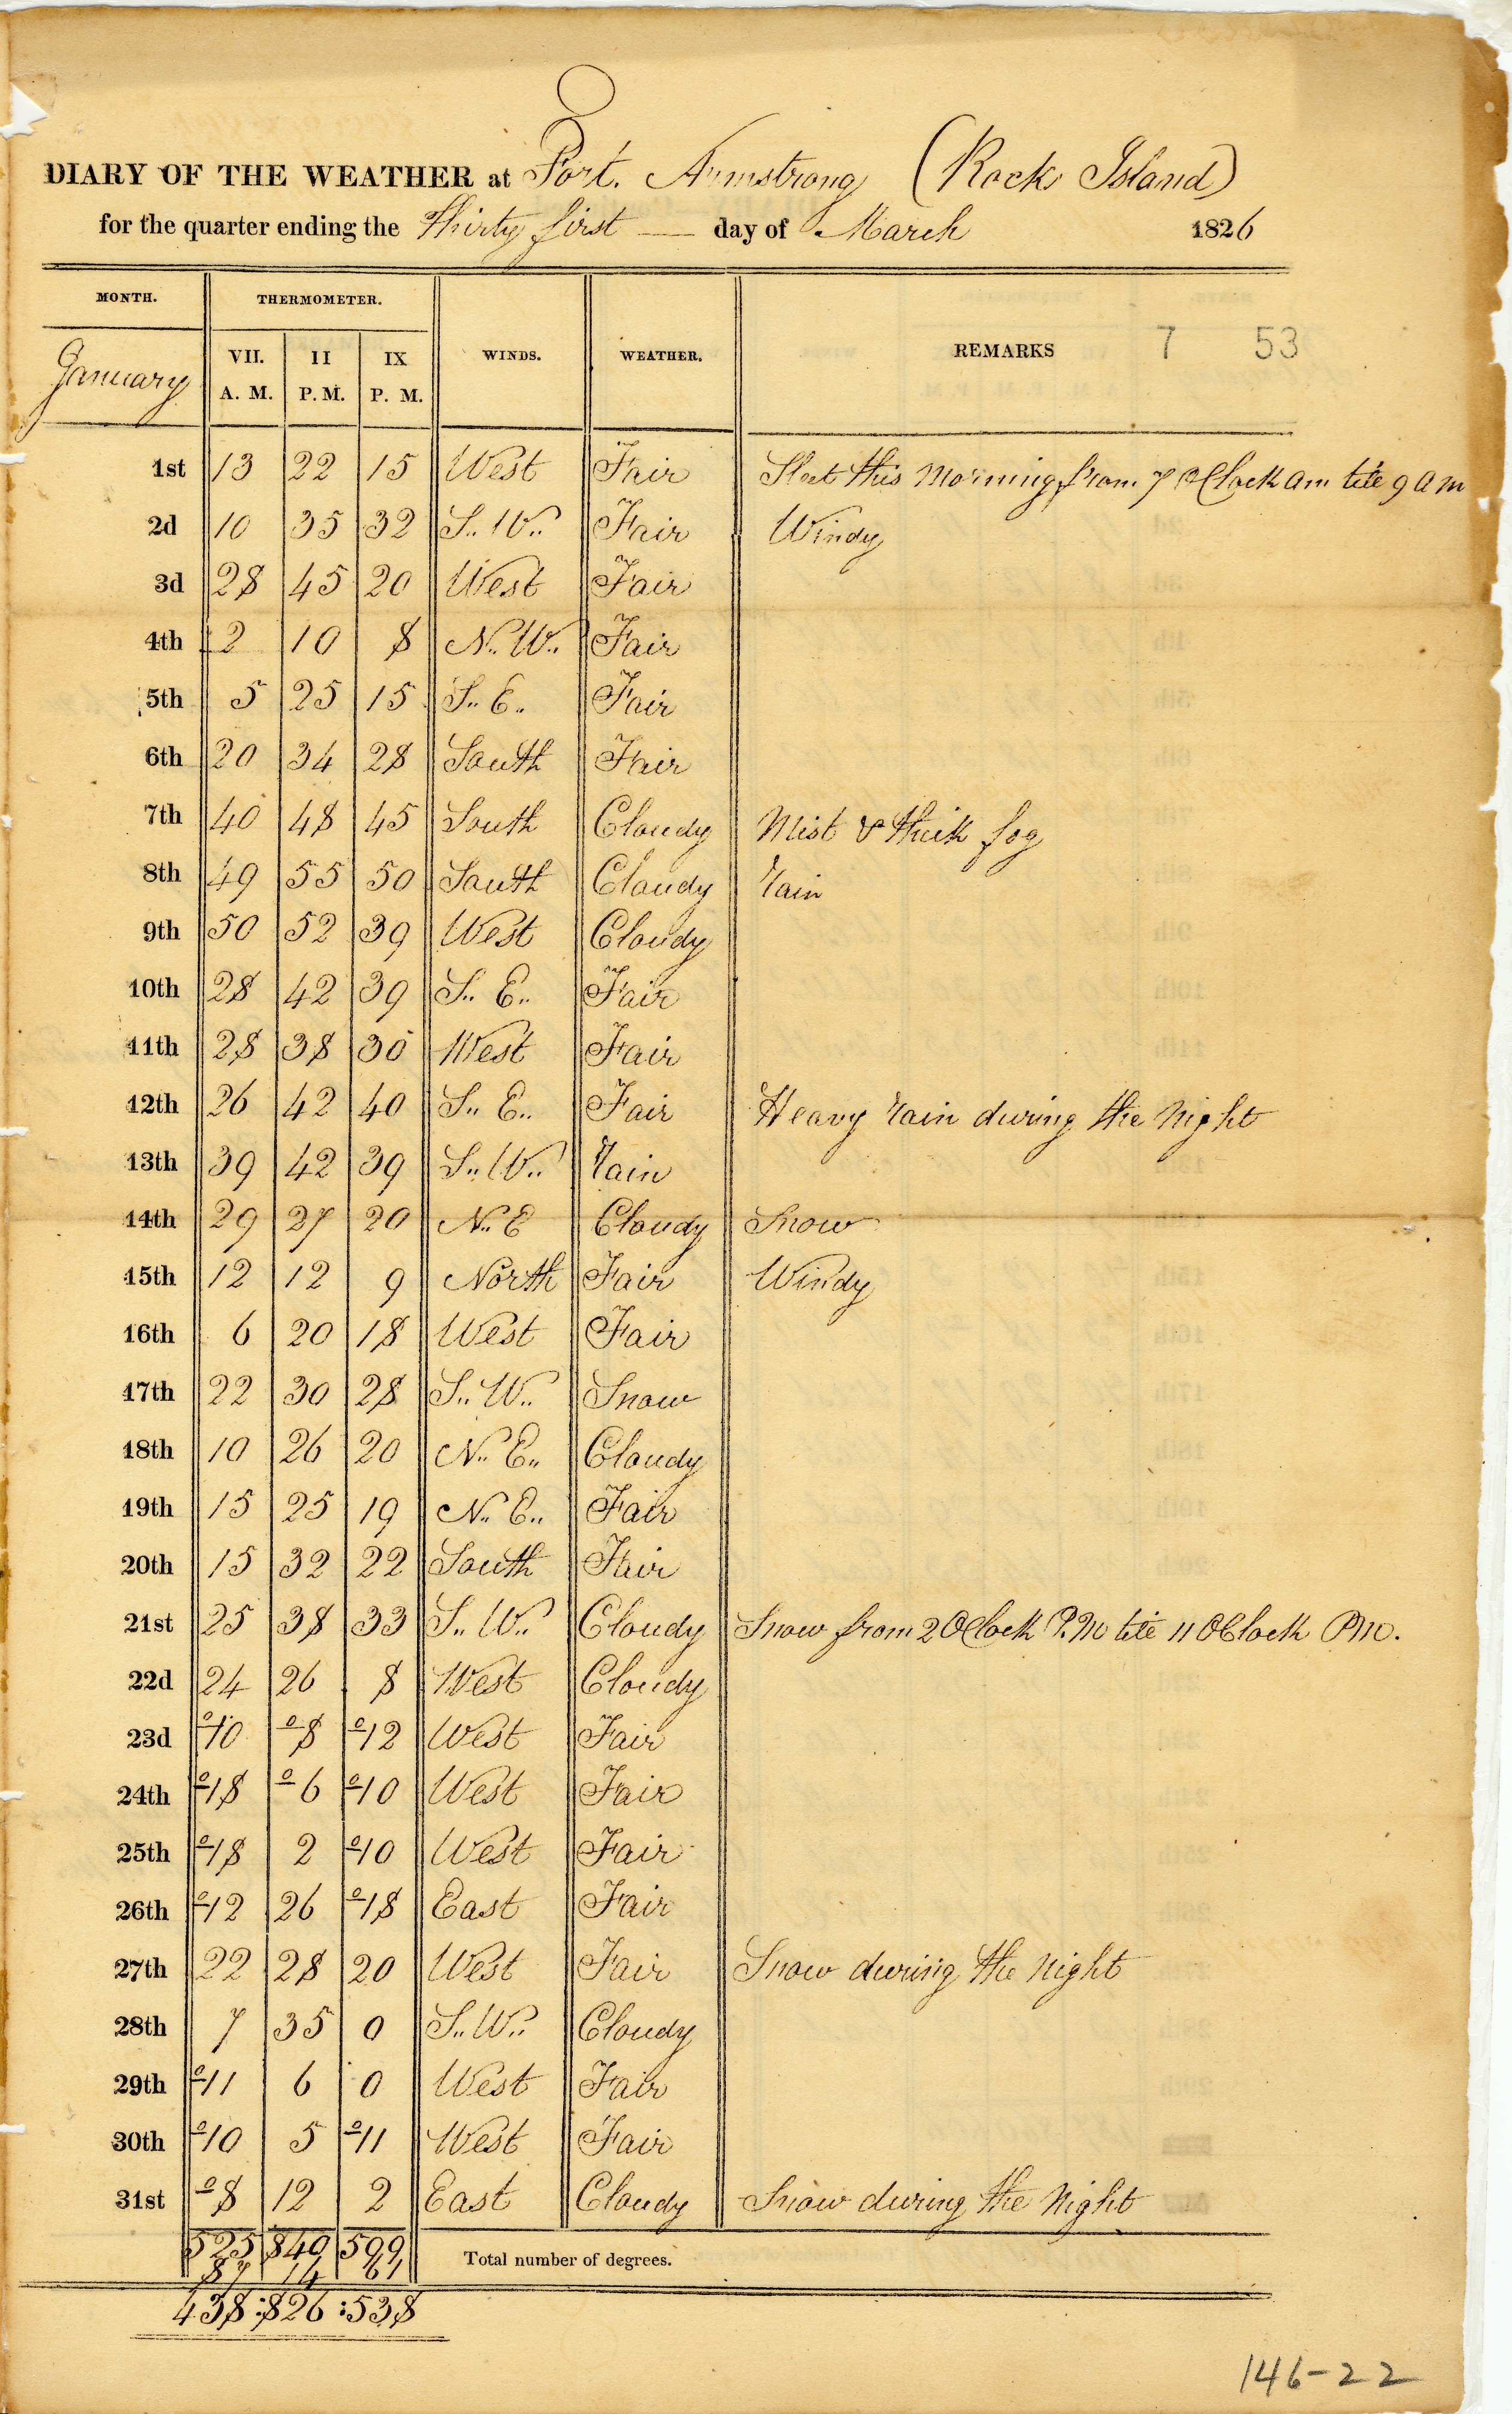 DIARY OF THE WEATHER at Fort. Armstrong (Rock Island)
for the quarter ending the Thirty first — day of March 1826
MONTH. THERMOMETER. WINDS. WEATHER. REMARKS 7 53
January VII. A. M. II P. M. IX P. M.
1st 13 22 15 West Fair Sleet this Morning from 7 OClock am till 9 A M
2d 10 35 32 S.. W.. Fair Windy
3d 28 45 20 West Fair
4th 2 10 8 N.. W.. Fair
5th 5 25 15 S.. E.. Fair
6th 20 34 28 South Fair
7th 40 48 45 South Cloudy Mist & thick fog
8th 49 55 50 South Cloudy rain
9th 50 52 39 West Cloudy
10th 28 42 39 S.. E.. Fair
11th 28 38 30 West Fair
12th 26 42 40 S.. E.. Fair Heavy rain during the Night
13th 39 42 39 S.. W.. rain
14th 29 27 20 N.. E Cloudy Snow
15th 12 12 9 North Fair Windy
16th 6 20 18 West Fair
17th 22 30 28 S.. W.. Snow
18th 10 26 20 N.. E.. Cloudy
19th 15 25 19 N.. E.. Fair
20th 15 32 22 South Fair
21st 25 38 33 S.. W.. Cloudy Snow from 2 OClock P.M till 11 OClock PM.
22d 24 26 8 West Cloudy
23d º10 º8 º12 West Fair
24th º18 º6 º10 West Fair
25th º18 2 º10 West Fair
26th º12 26 º18 East Fair
27th 22 28 20 West Fair Snow during the Night
28th 7 35 0 S.. W.. Cloudy
29th º11 6 0 West Fair
30th º10 5 º11 West Fair
31st º8 12 2 East Cloudy Snow during the Night
525 840 599 Total number of degrees.
87 14 61
438:826:538
146-22